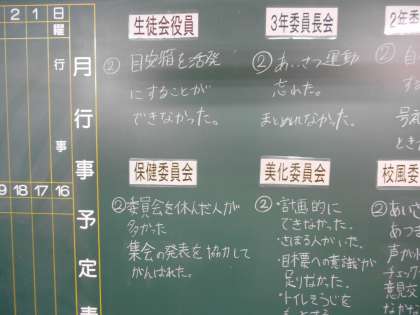 2 1 日
曜
行
事
19 18 17 16
月行事予定表
生徒会役員
② 目安箱を活発
にすることが
できなかった。
3年委員長会
② あいさつ運動
忘れた。
まとめれなかった。
2年委
②
保健委員会
② 委員会を休んだ人が
多かった
集会の発表を協力して
がんばれた。
美化委員会
② ・計画的に
できなかった。
・さぼる人がいた。
・目標への意識が
足りなかった。
・トイレそうじを
校風委
② あいさ
あつま
声が
チェック
意見交